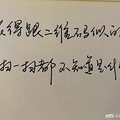 得跟二维码似的
扫一扫都不知道是什